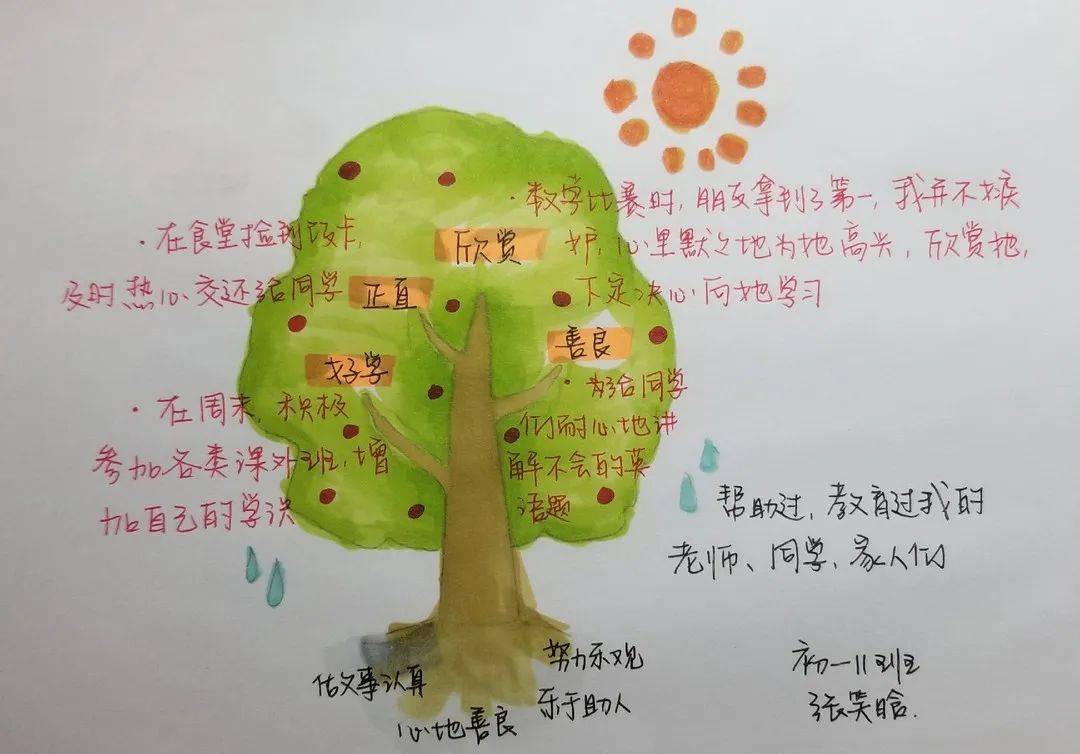 ·数学比赛时,朋友拿到了第一,我并不嫉
妒,心里默之地为她高兴,欣赏她,
下定决心向她学习
欣赏
·在食堂捡到饭卡,
及时热心交还给同学
正直
善良
·好给同学
们耐心地讲
解不会的英
语题
好学
·在周末,积极
参加各类课外班,增
加自己的学识
帮助过,教育过我的
老师、同学、家人们
做事认真
心地善良
努力乐观
乐于助人
初一11班
张笑晗.